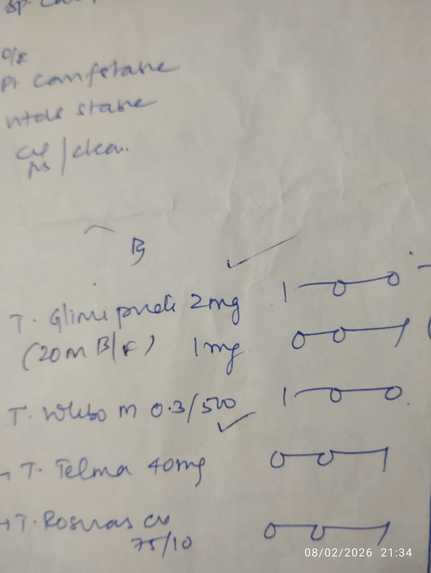 O/E
Pt comfortable
vitals stable
CVS
RS / clear.
Rx
T. Glimipride 2mg 1—0—0
(20m B/F) 1mg 0—0—1
T. Volibo M 0.3/500 1—0—0
→ T. Telma 40mg 0—0—1
→ T. Rosuvas CV 0—0—1
75/10
08/02/2026 21:34